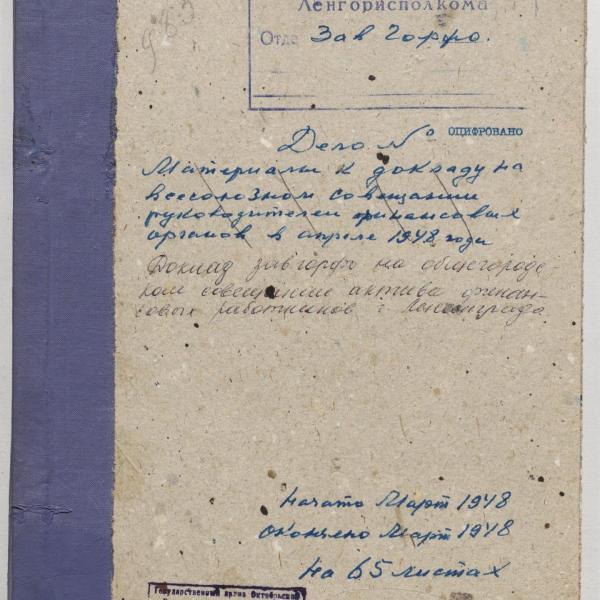 983
Ленгорисполкома
Отде Зав Горфо.
Дело №
ОЦИФРОВАНО
Материалы к докладу на
всесоюзном совещании
руководителей финансовых
органов в апреле 1948 года
Доклад завгорфо на общегородс-
ком совещании актива финан-
совых работников г Ленинграда
Начато Март 1948
Окончено Март 1948
На 65 листах
Государственный архив Октябрьской